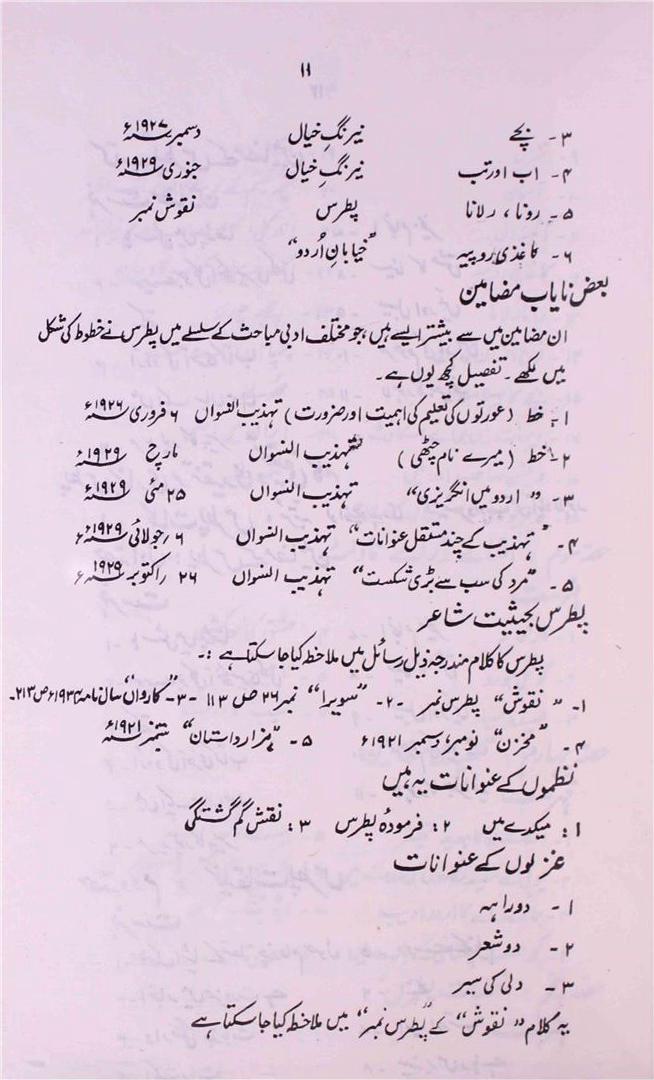 ۱۱
۳ - بچے نیرنگِ خیال دسمبر ۱۹۲۷ء
۴ - اب اور تب نیرنگِ خیال جنوری ۱۹۲۹ء
۵ - رونا، رلانا پطرس نقوش نمبر
۶ - کاغذی روپیہ "خیابانِ اُردو"
بعض نایاب مضامین
ان مضامین میں سے بیشتر ایسے ہیں، جو مختلف ادبی مباحث کے سلسلے میں پطرس نے خطوط کی شکل
میں لکھے۔ تفصیل کچھ یوں ہے۔
۱- خط (عورتوں کی تعلیم کی اہمیت اور ضرورت) تہذیب النسواں ۶ فروری ۱۹۲۶ء
۲- خط (میرے نام چٹھی) تہذیب النسواں مارچ ۱۹۲۹ء
۳ - "اردو میں انگریزی" تہذیب النسواں ۲۵ مئی ۱۹۲۹ء
۴ - "تہذیب کے چند مستقل عنوانات" تہذیب النسواں ۶ جولائی ۱۹۲۹ء
۵ - "مرد کی سب سے بڑی شکست" تہذیب النسواں ۲۶ اکتوبر ۱۹۲۹ء
پطرس بحیثیت شاعر
پطرس کا کلام مندرجہ ذیل رسائل میں ملاحظہ کیا جا سکتا ہے :-
۱- "نقوش" پطرس نمبر -۲- "سویرا" نمبر ۲۶ ص ۱۱۳ -۳- "کارواں" سال نامہ ۱۹۳۴ء ص ۲۱۳-
۴ - "مخزن" نومبر، دسمبر ۱۹۲۱ء ۵ - "ہزار داستان" ستمبر ۱۹۲۱ء
نظموں کے عنوانات یہ ہیں
۱: میکدے میں ۲: فرمودۂ پطرس ۳: نقشِ گم گشتگی
غزلوں کے عنوانات
۱ - دوراہہ
۲ - دو شعر
۳ - دلی کی سیر
یہ کلام "نقوش" کے "پطرس نمبر" میں ملاحظہ کیا جا سکتا ہے